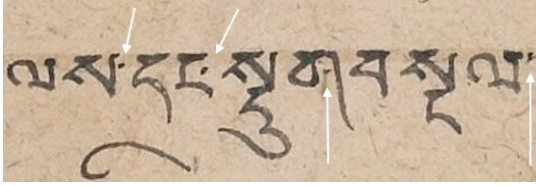 ལས་དང་སྡུག་བསྔལ་